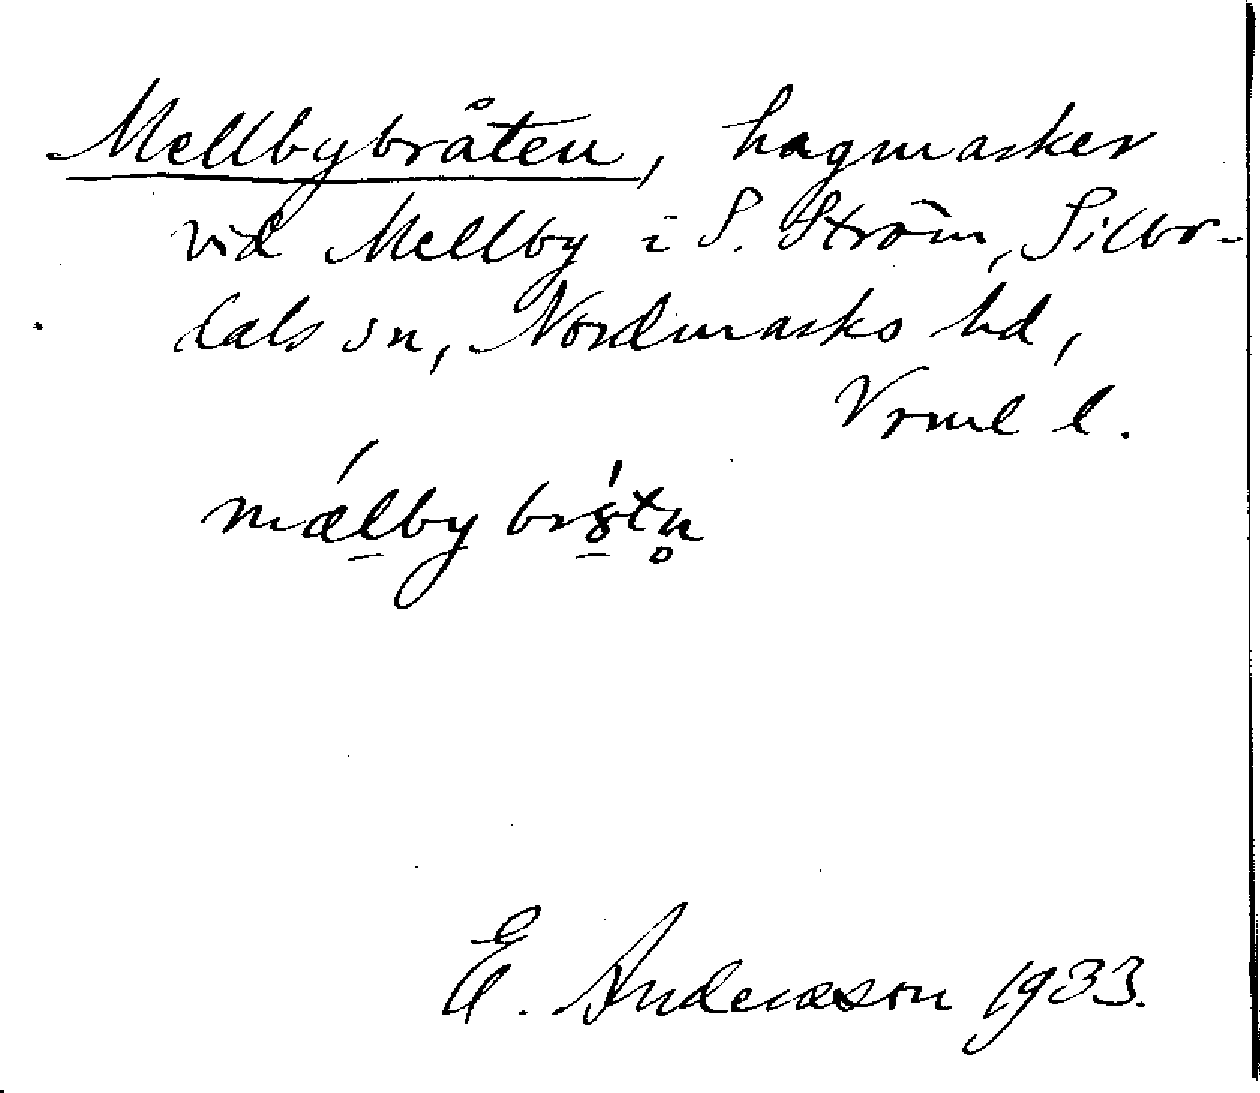 Mellbybråten, hagmarker
vid Mellby i S. Ström, Silbo-
dals sn, Nordmarks hd,
Vrml l.
mǽlby
E. Andersson 1933.